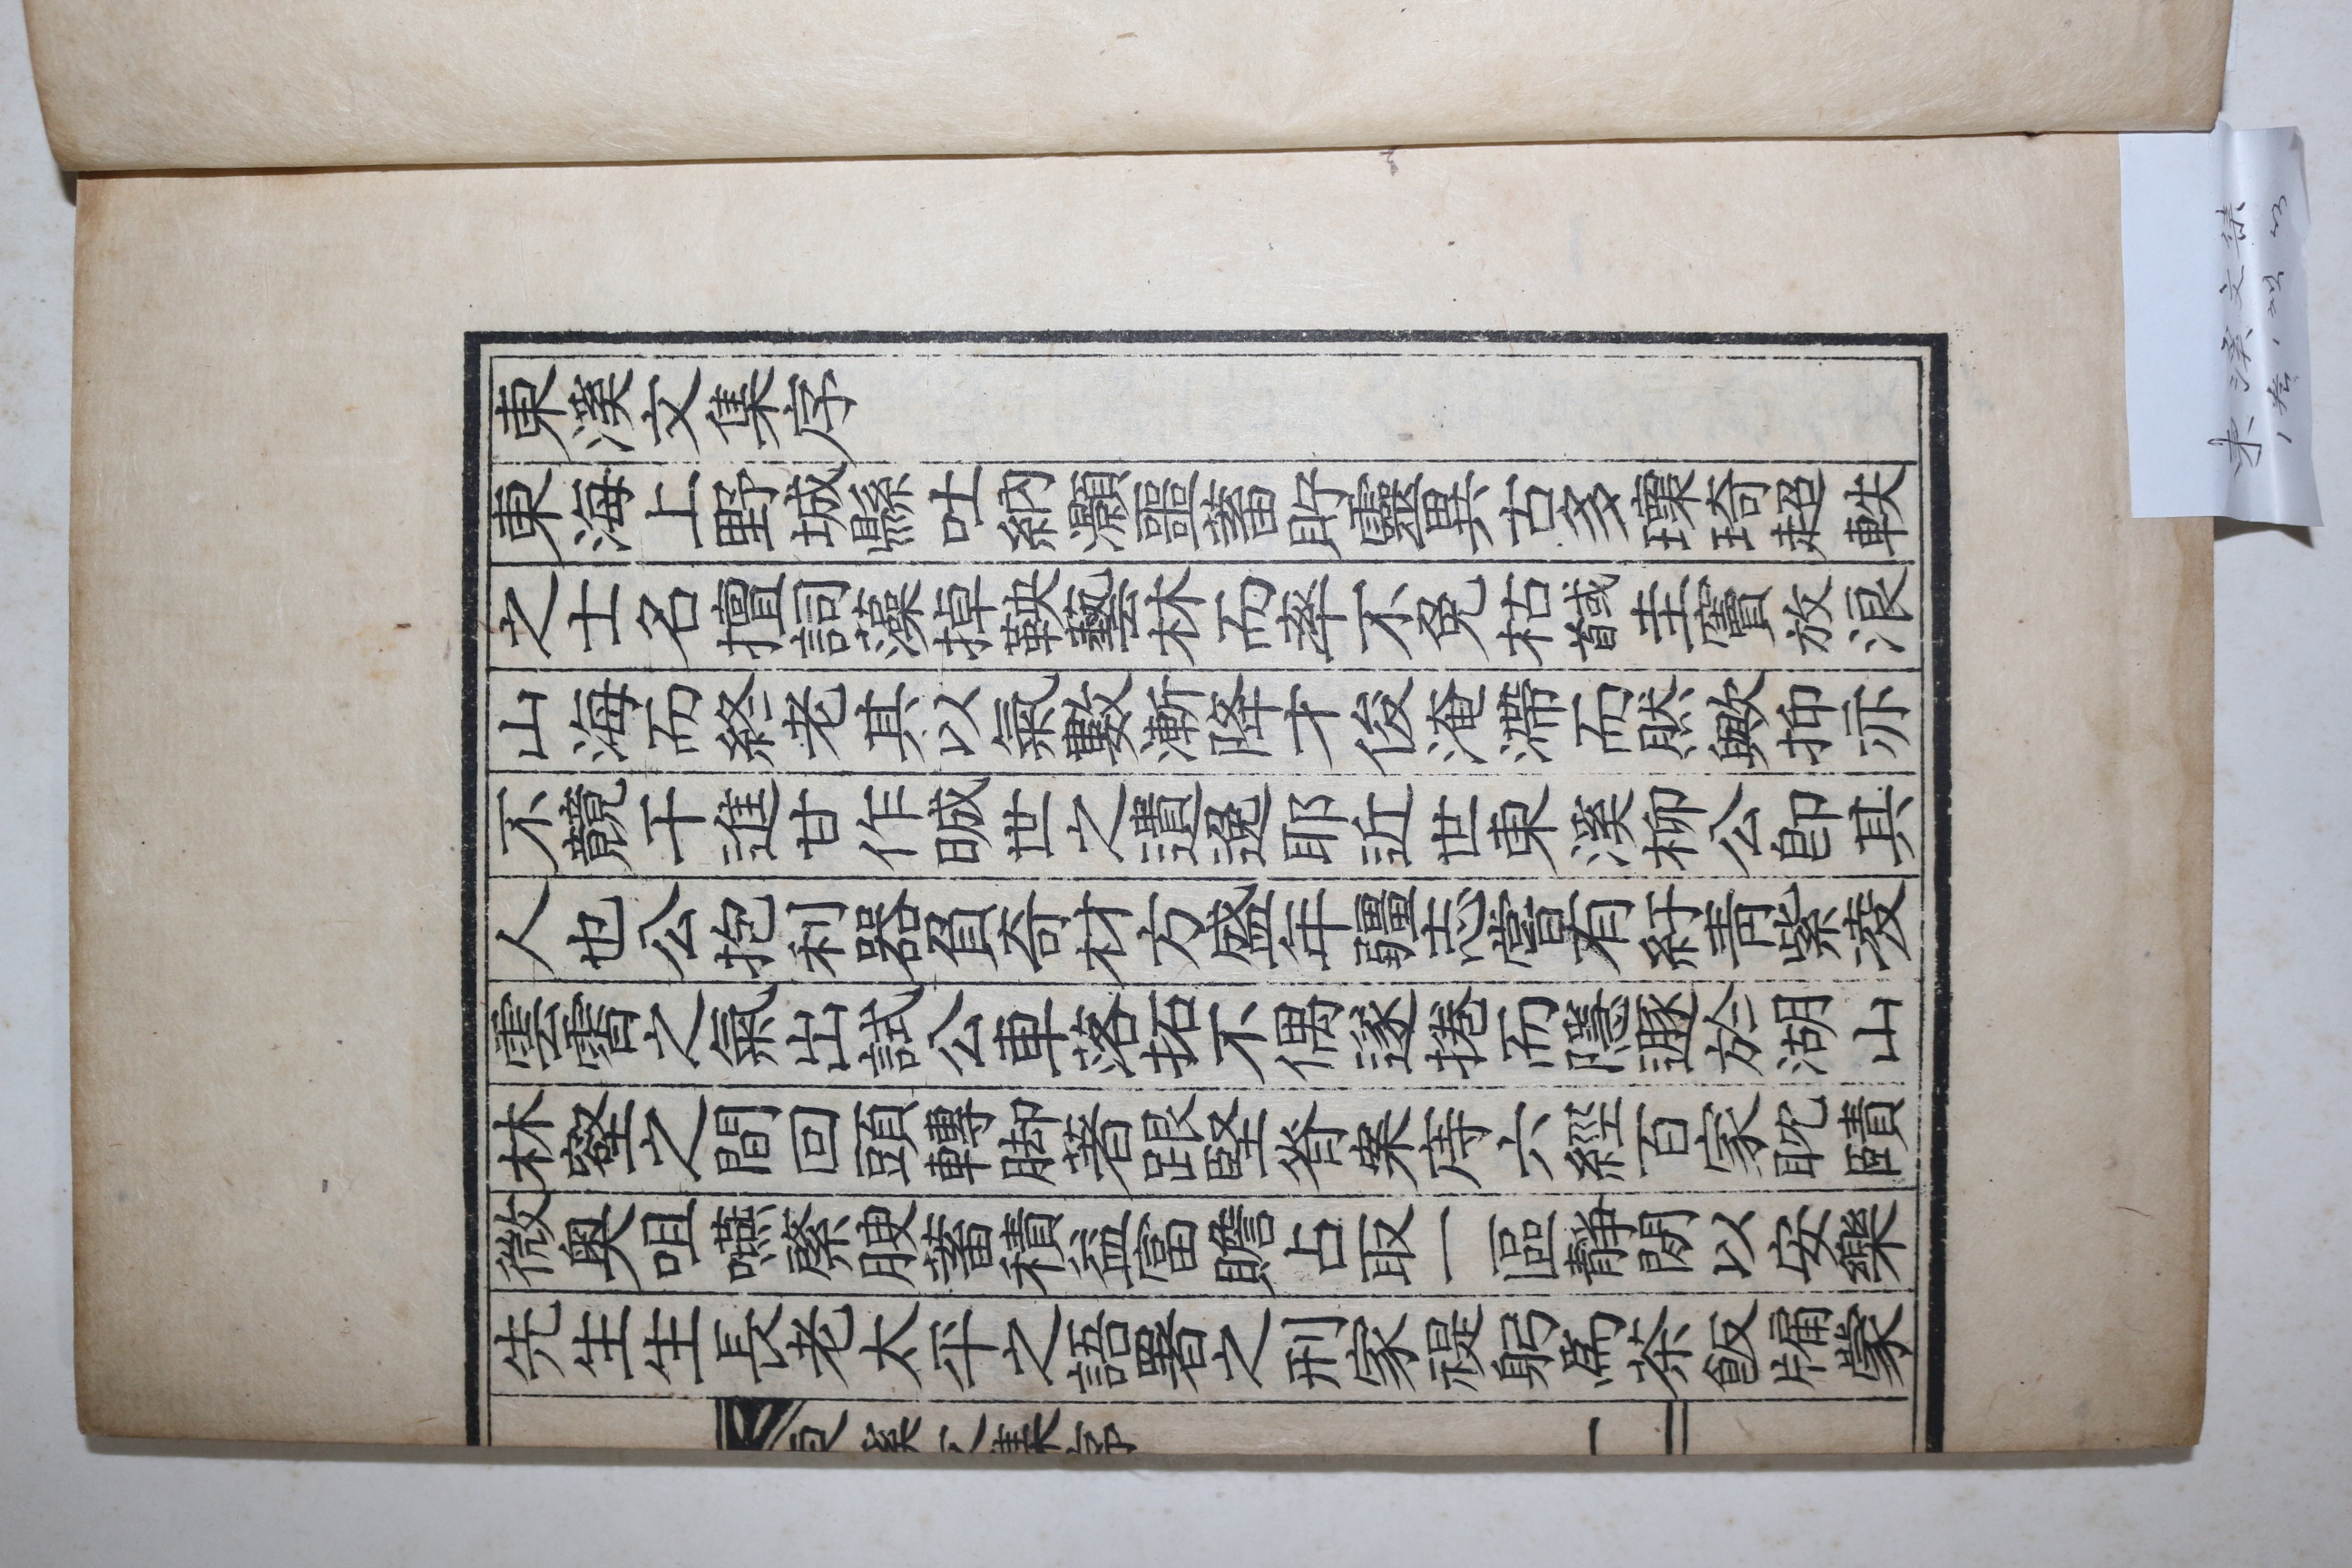 東溪文集序
東海上野城縣吐納灝噩蓄貯靈異古多瓌琦超軼
之士名擅詞藻掉鞅藝林而率不免枯馘圭竇放浪
山海而終老其以氣數漸降才俊淹滯而然歟抑亦
不競干進甘作晠世之遺逸耶近世東溪柳公卽其
人也公抱利器負奇材方盛年疆志嘗有紆靑紫凌
雲霄之氣出試公車落拓不偶遂捲而隱遯於湖山
林壑之間回頭轉脚著跟堅脊案庤六經百家耽賾
微奧咀嚥綮腴蓄積益富贍占取一區靜閒以安樂
先生生長老太平之語署之刑家禔躬爲茶飯牖蒙
東溪文集序
一
東溪文集